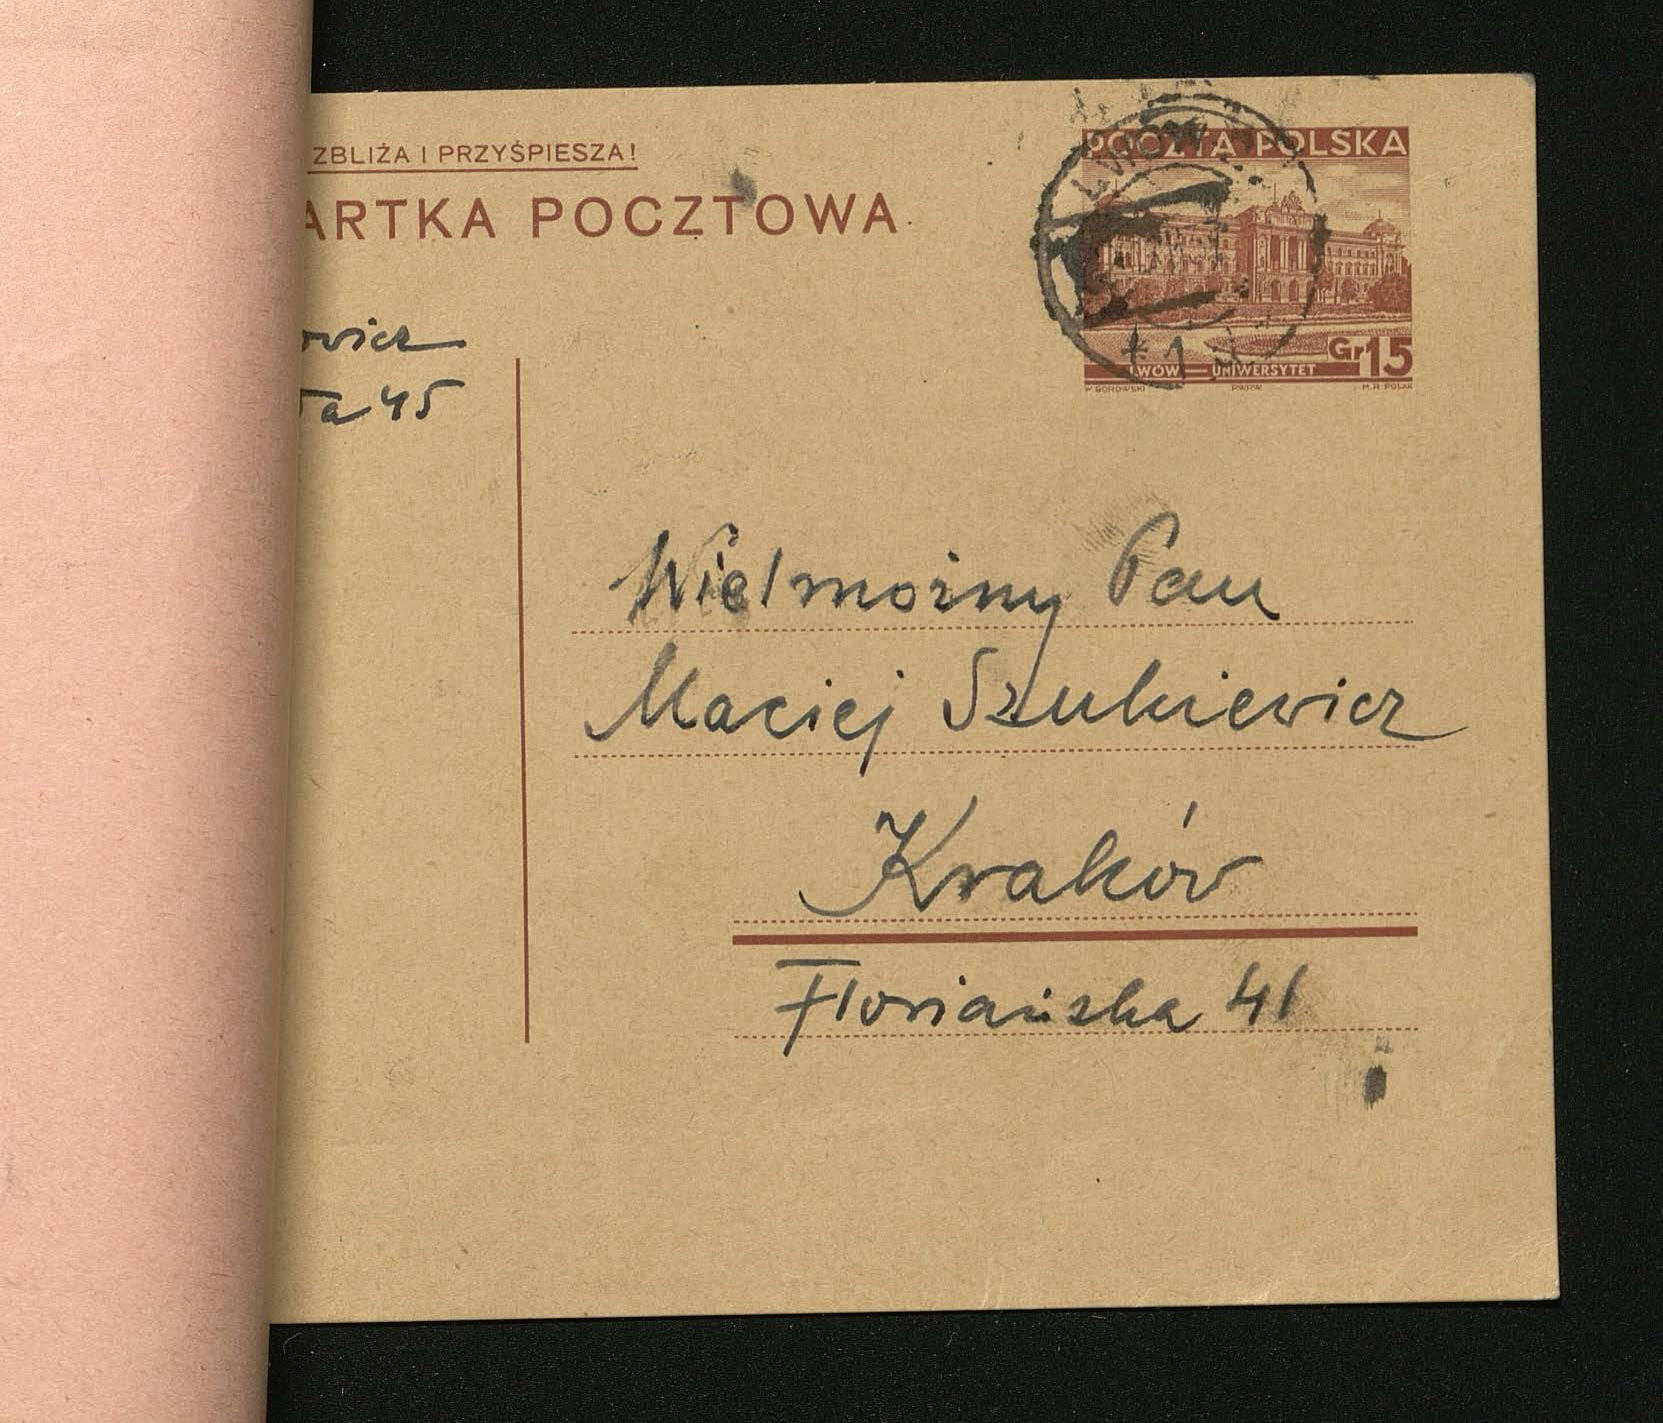 ZBLIŻA I PRZYŚPIESZA!
ARTKA POCZTOWA
POCZTA POLSKA
LWÓW
Gr 15
LWÓW — UNIWERSYTET
W. BOROWSKI PWPW M.R. POLAK
owicz
a 45
Wielmożny Pan
Maciej Szukiewicz
Kraków
Floriańska 41